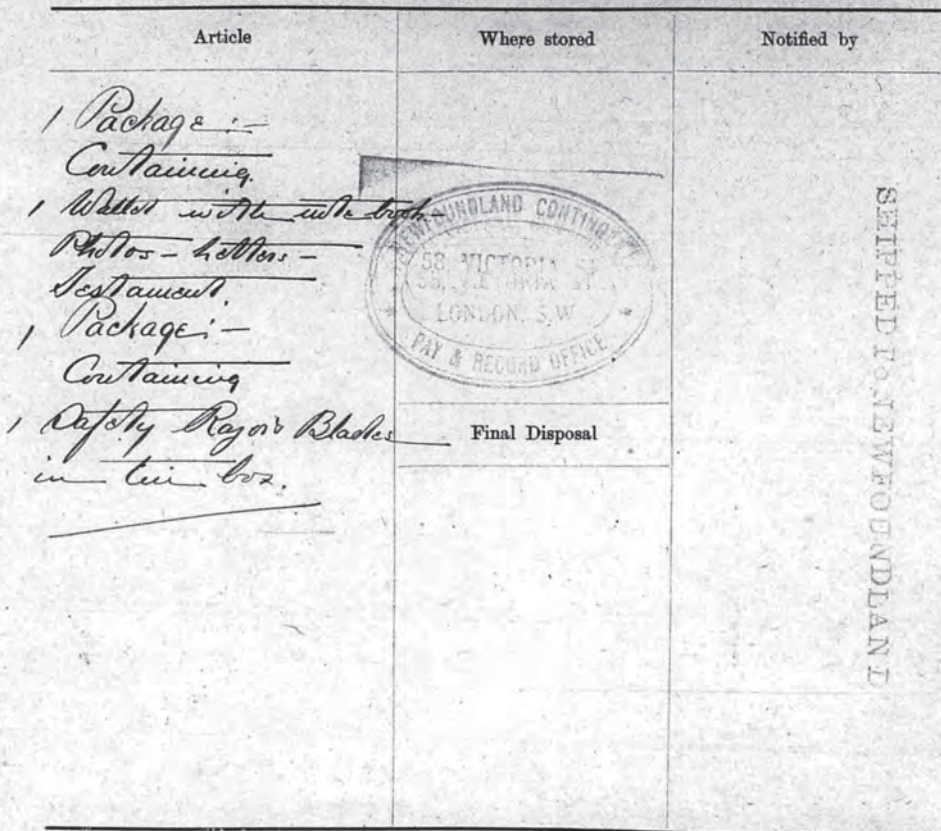 Article
Where stored
Notified by
1 Package :-
Containing
1 Wallet with note book
Photos - Letters -
Testament.
1 Package :-
Containing
1 Safety Razor & Blades
in tin box.
NEWFOUNDLAND CONTINGENT
58, VICTORIA ST
LONDON, S.W
* PAY & RECORD OFFICE *
Final Disposal
SHIPPED TO NEWFOUNDLAND